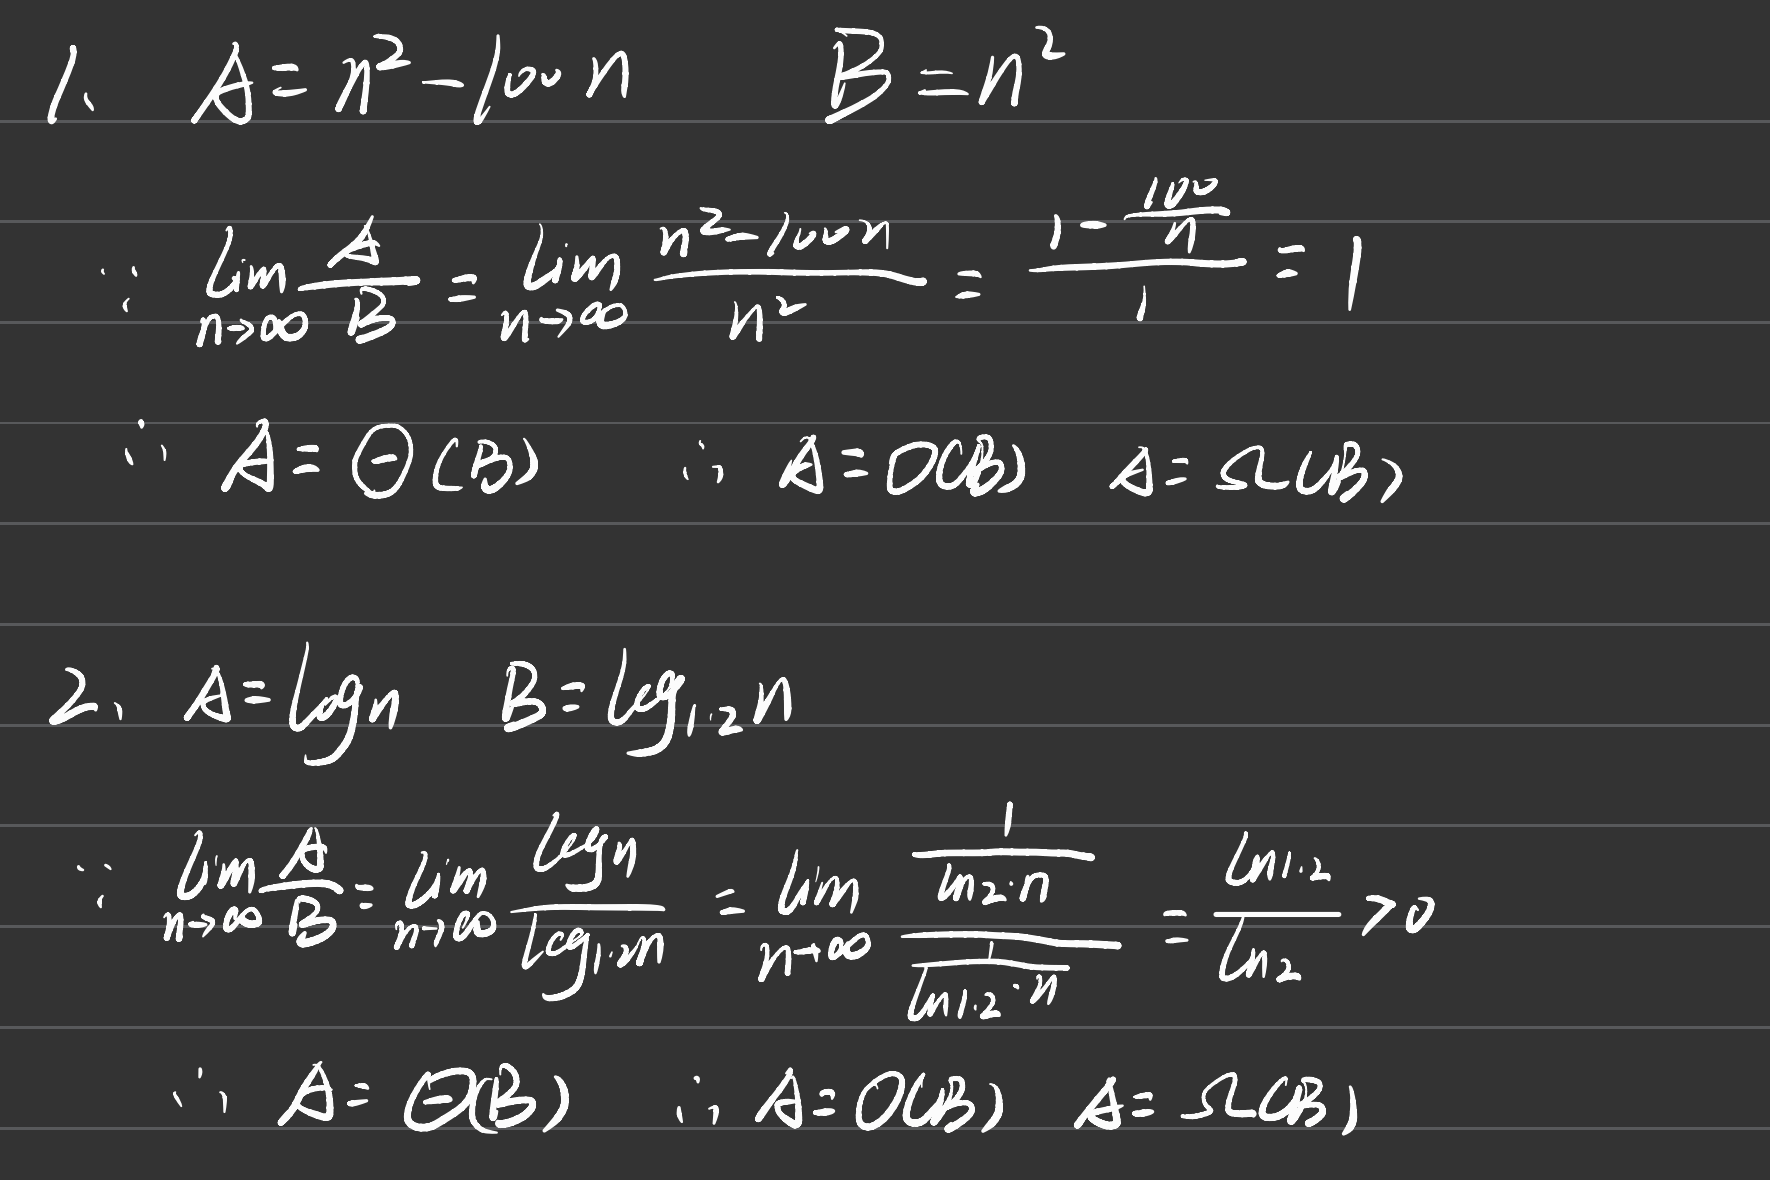 1、 A = n² - 100n B = n²
∵ lim_{n→∞} A/B = lim_{n→∞} (n² - 100n)/n² = (1 - 100/n)/1 = 1
∴ A = Θ(B) ∴ A = O(B) A = Ω(B)
2、 A = logn B = log_{1.2}n
∵ lim_{n→∞} A/B = lim_{n→∞} logn/log_{1.2}n = lim_{n→∞} (1/(ln2·n))/(1/(ln1.2·n)) = ln1.2/ln2 > 0
∴ A = Θ(B) ∴ A = O(B) A = Ω(B)